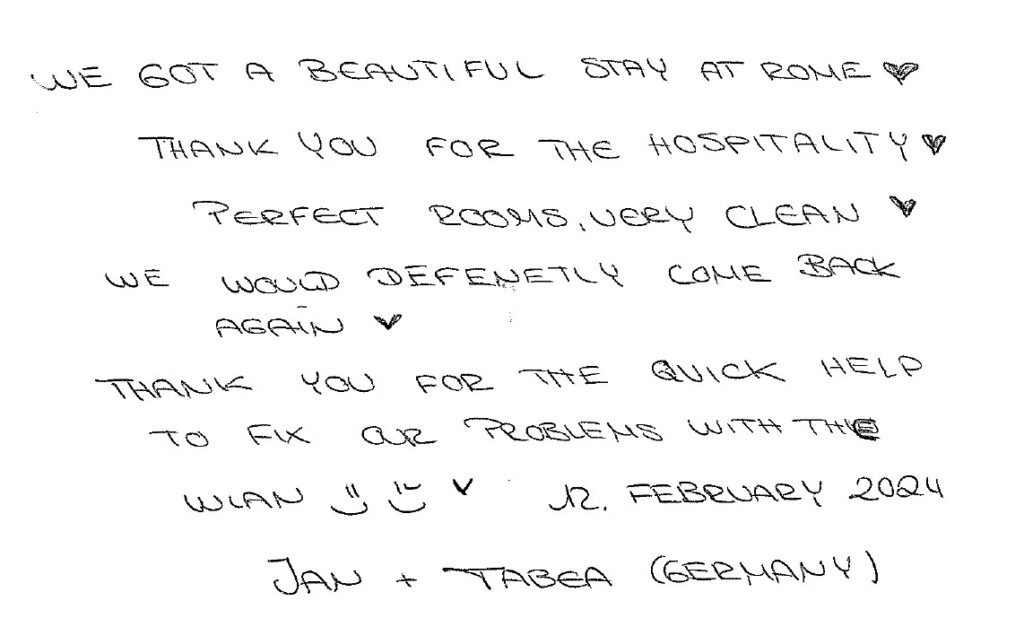 WE GOT A BEAUTIFUL STAY AT ROME ♥
THANK YOU FOR THE HOSPITALITY ♥
PERFECT ROOMS, VERY CLEAN ♥
WE WOULD DEFENETLY COME BACK
AGAIN ♥
THANK YOU FOR THE QUICK HELP
TO FIX OUR PROBLEMS WITH THE
WLAN :) :) ♥ 12. FEBRUARY 2024
JAN + TABEA (GERMANY)